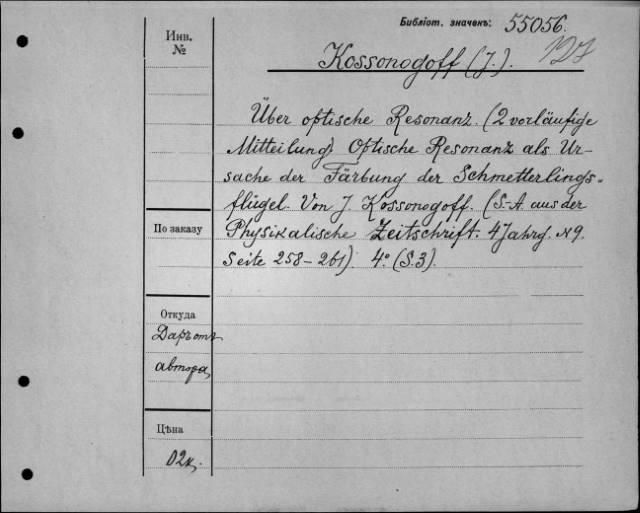 Библіот. значекъ: 55056.
127
Инв.
№
Kossonogoff (J.).
Über optische Resonanz. (2 vorläufige
Mitteilung) Optische Resonanz als Ur-
sache der Färbung der Schmetterlings-
flügel. Von J. Kossonogoff. (S.-A. aus der
Physikalische Zeitschrift. 4 Jahrg. N 9.
Seite 258-261). 4º (S.3).
По заказу
Откуда
Даръ отъ
автора
Цѣна
02к.